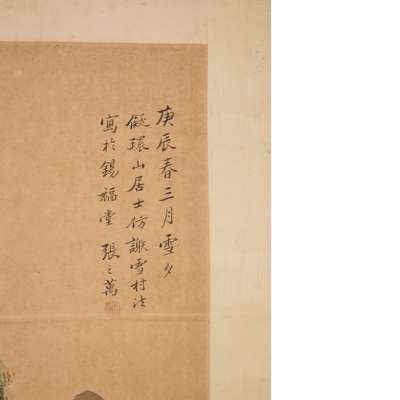 庚辰春三月雪夕
儗環山居士仿謝雪村法
寫於錫福堂 張之萬